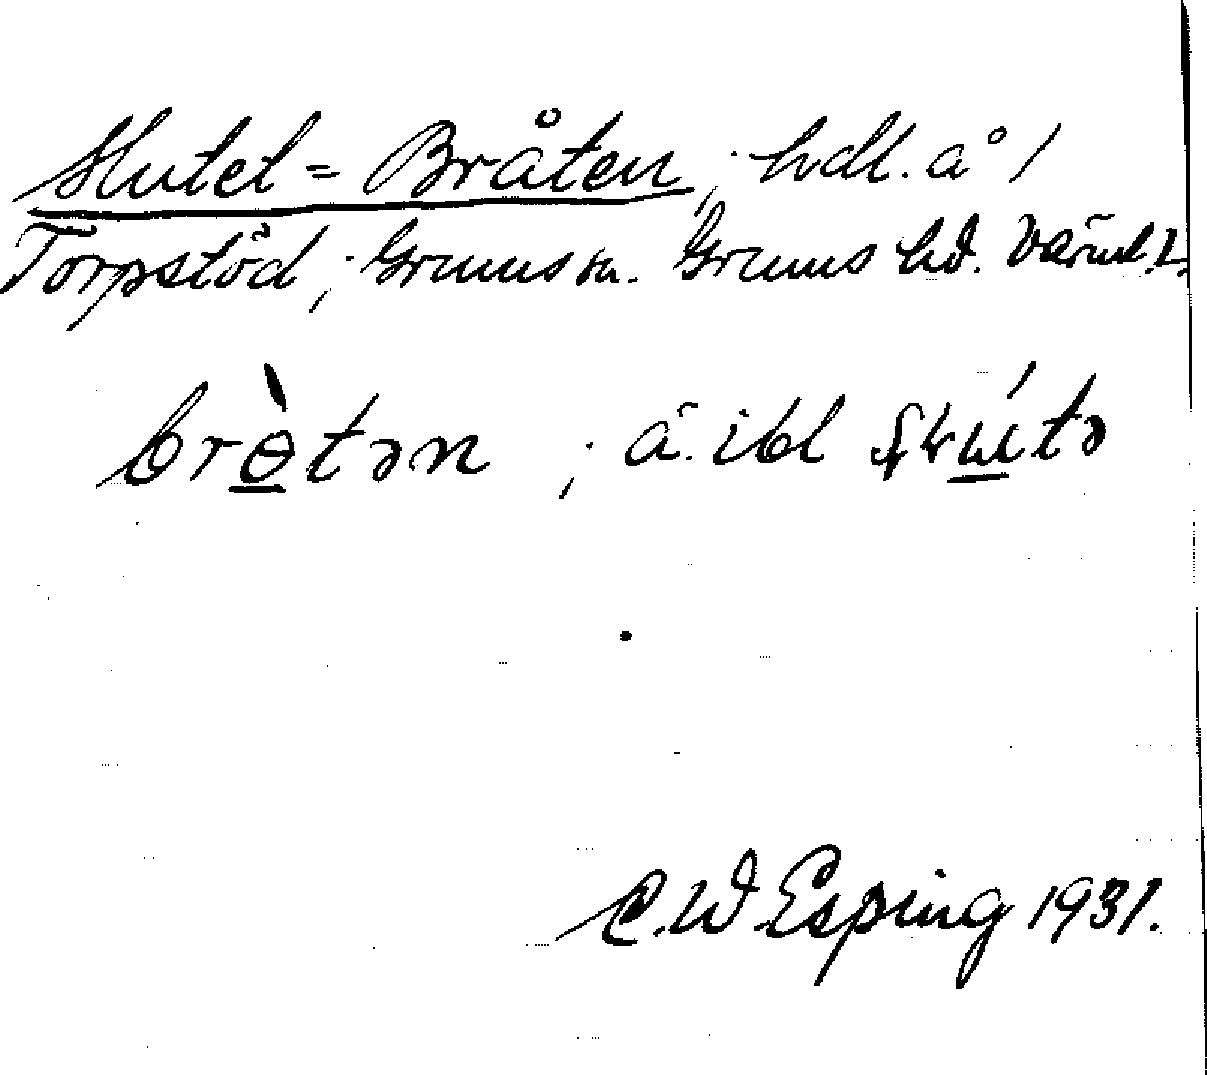 Slutet = Bråten; hdl. å 1
Torpstöd; Grums sn. Grums hd. Värml. L.
brɵ̀tən ; ä. ibl
C. W Esping 1931.